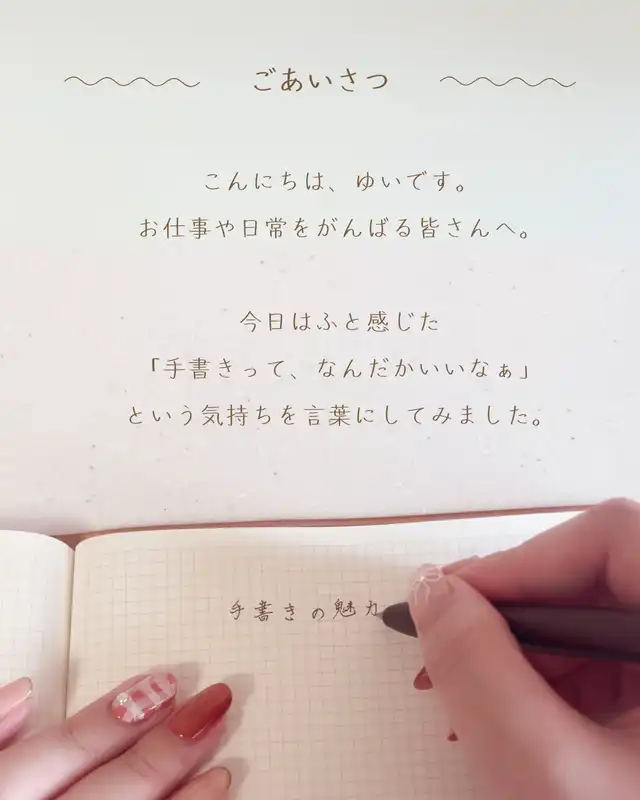 ごあいさつ
こんにちは、ゆいです。
お仕事や日常をがんばる皆さんへ。
今日はふと感じた
「手書きって、なんだかいいなぁ」
という気持ちを言葉にしてみました。
手書きの魅力